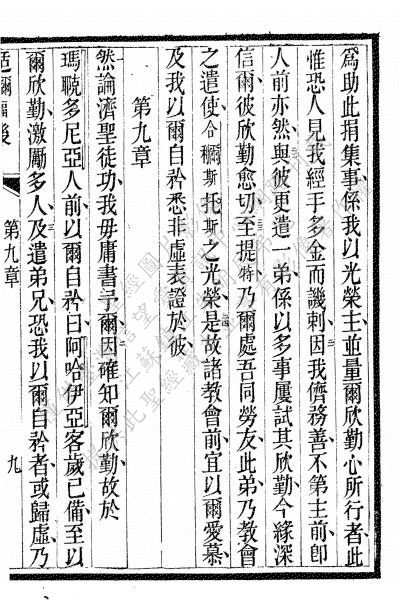 爲助此捐集事係我以光榮主並量爾欣勤心所行者此
惟恐人見我經手多金而譏刺因我儕務善不第主前卽
人前亦然與彼更遣一弟係以多事屢試其欣勤今緣深
信爾彼欣勤愈切至提特乃爾處吾同勞友此弟乃教會
之遣使合穪斯托斯之光榮是故諸教會前宜以爾愛慕
及我以爾自矜悉非虛表證於彼
第九章
然論濟聖徒功我毋庸書予爾因確知爾欣勤故於
瑪嘵多尼亞人前以爾自矜曰阿哈伊亞客歲已備至以
爾欣勤激厲多人及遣弟兄恐我以爾自矜者或歸虛乃
後
第九章
九